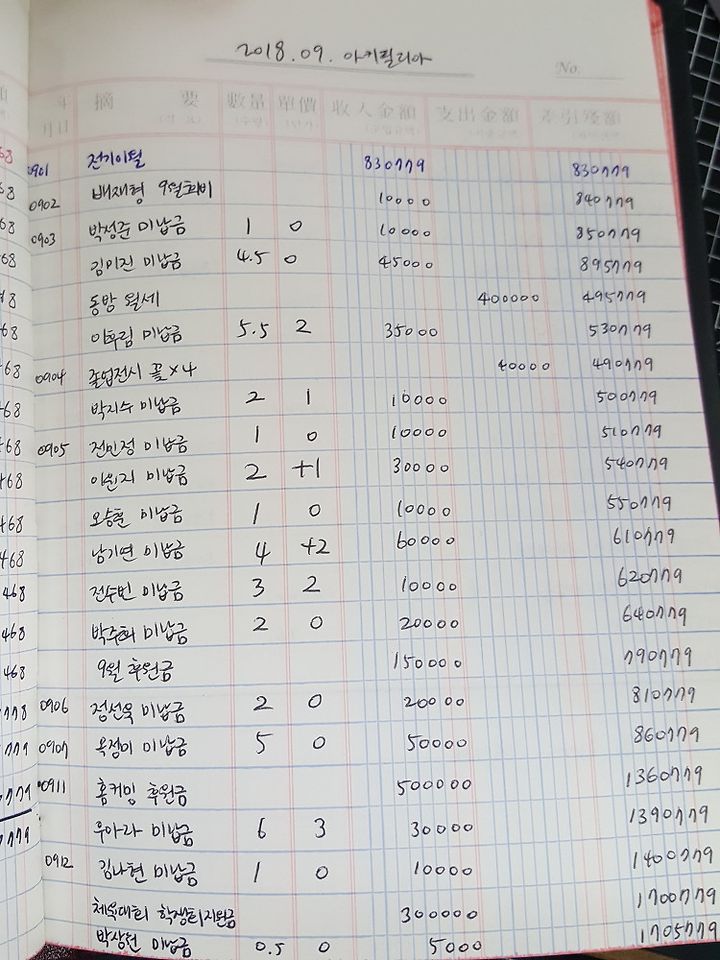 2018.09. 아키필리아
No.
年 月日 摘 要 數量 單價 收入金額 支出金額 差引殘額
0901 전기이월 830779 830779
0902 배재형 9월회비 10000 840779
0903 박정준 미납금 1 0 10000 850779
김이진 미납금 4.5 0 45000 895779
동방 월세 400000 495779
이푸림 미납금 5.5 2 35000 530779
0904 졸업전시 꽃×4 40000 490779
박지수 미납금 2 1 10000 500779
0905 전민정 미납금 1 0 10000 510779
이원지 미납금 2 +1 30000 540779
오승훈 미납금 1 0 10000 550779
남기연 미납금 4 +2 60000 610779
전수빈 미납금 3 2 10000 620779
박주희 미납금 2 0 20000 640779
9월 후원금 150000 790779
0906 정선욱 미납금 2 0 20000 810779
0907 옥정미 미납금 5 0 50000 860779
0911 홈커밍 후원금 500000 1360779
우아라 미납금 6 3 30000 1390779
0912 김나현 미납금 1 0 10000 1400779
체육대회 학생회지원금 300000 1700779
박상원 미납금 0.5 0 5000 1705779